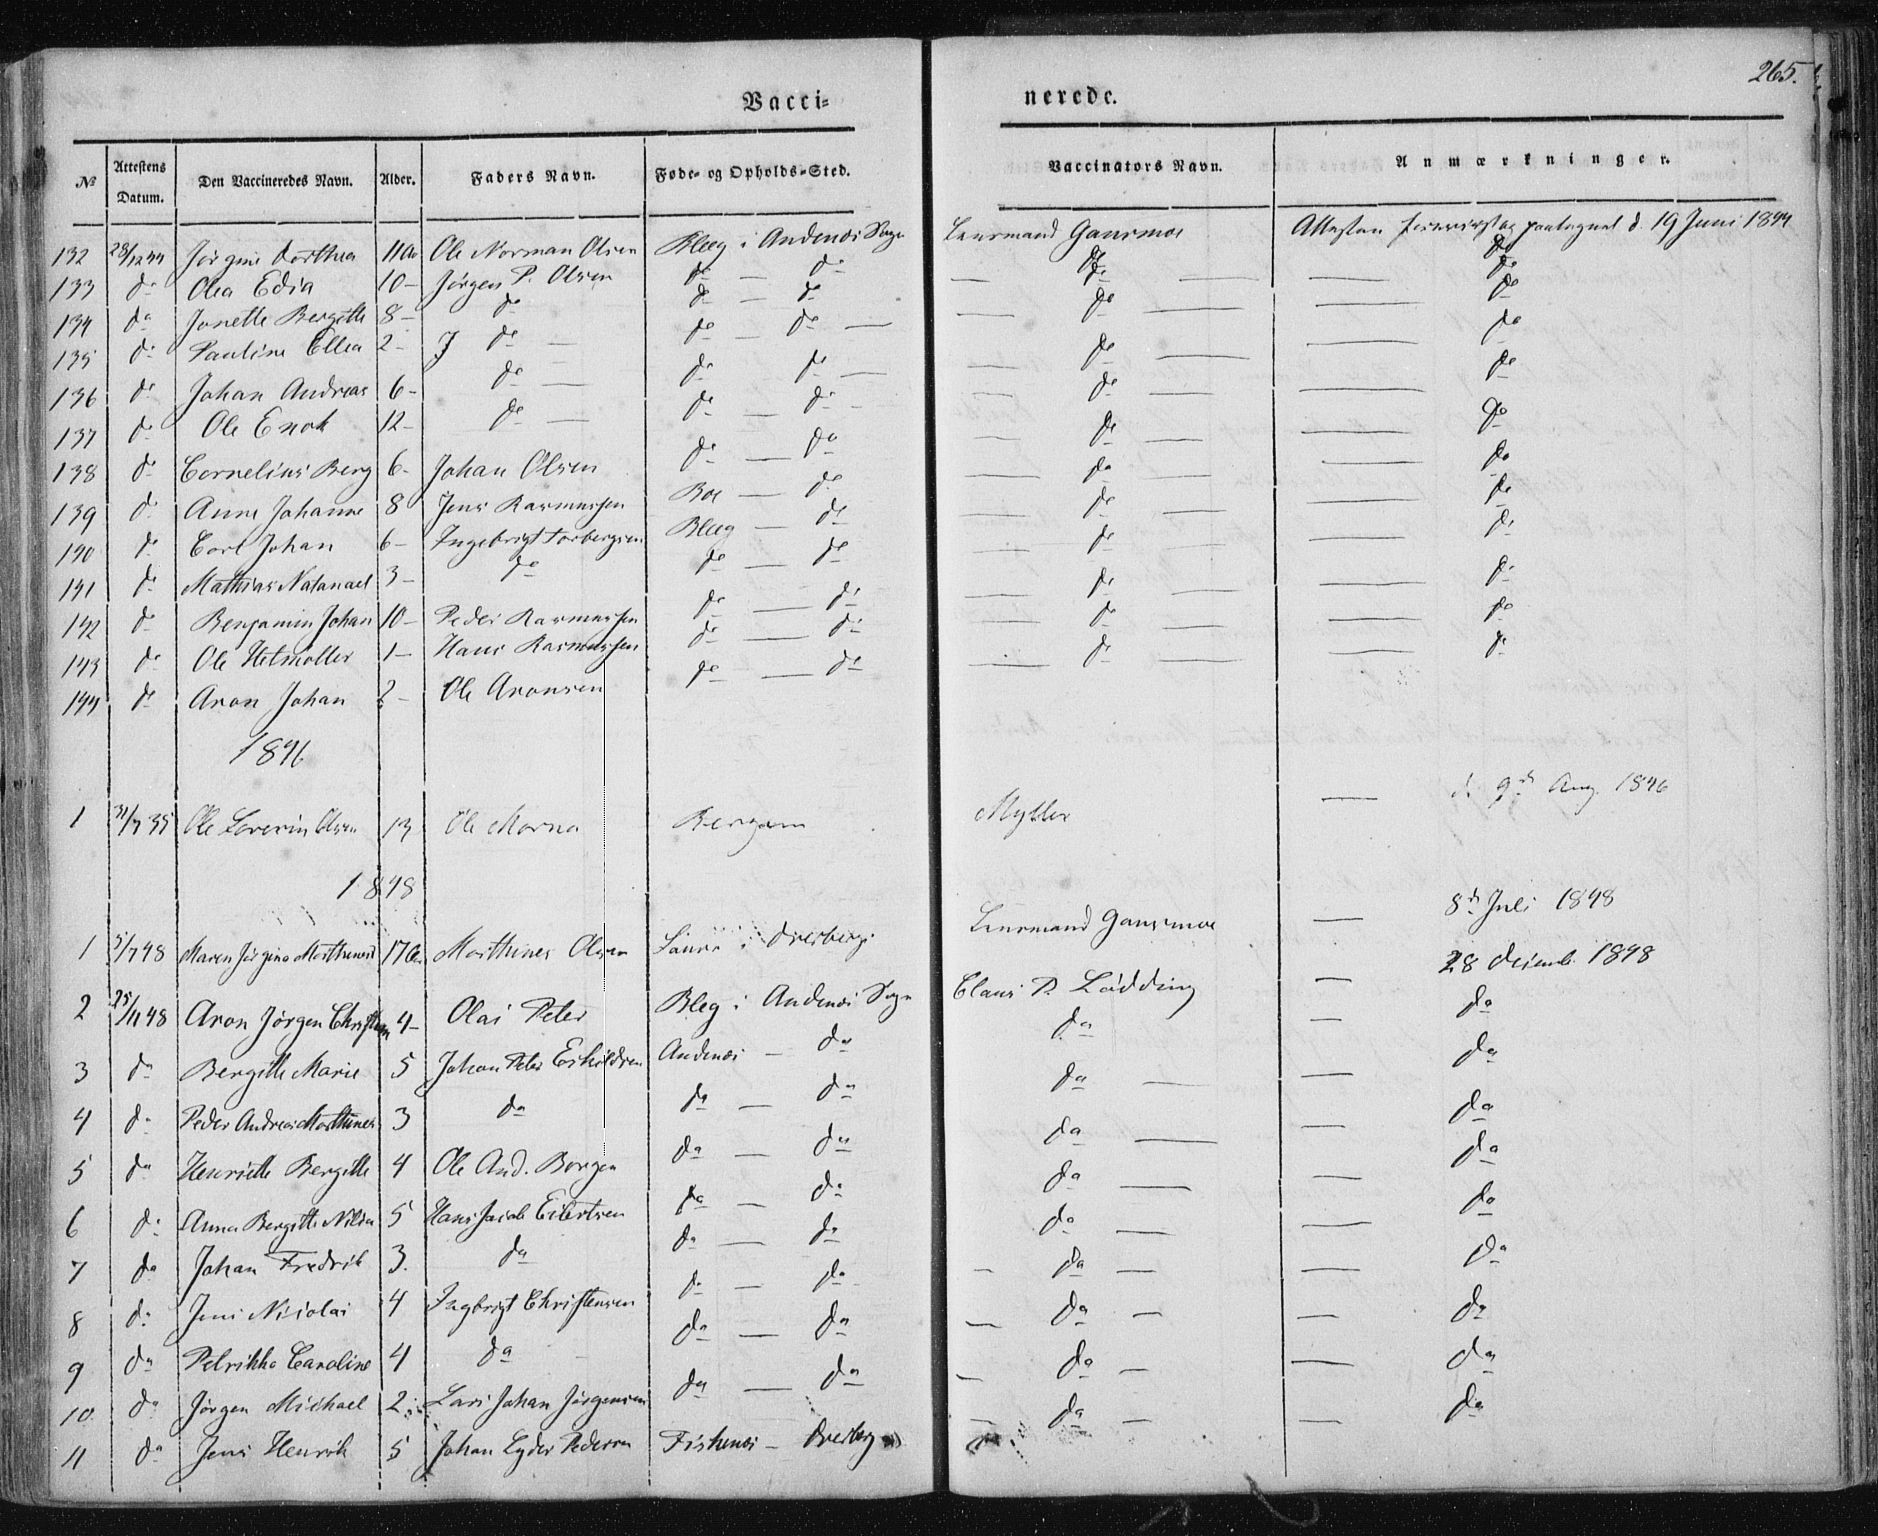 265.
Vacci= nerede.
№ Attestens Datum. Den Vaccineredes Navn. Alder. Faders Navn. Føde- og Opholds-Sted. Vaccinators Navn. Anmærkninger.
132 28/12 44 Jørgine Dorthea 11 Ole Norman Olsen Bleg i Andenæs Sogn Lensmand Gaarsmoe Attesten paategnet d. 19 Juni 1844
133 do Olea Edia 10 - Jørgen P. Olsen do — do — do — — do
134 do Janette Bergitte 8 - do do — do — do — — do
135 do Pauline Ellea 2 - J do — do — do — — do — — do
136 do Johan Andreas 6 - do — do do — — do — — do
137 do Ole Enok 12 - do — do — do - — do — — do
138 do Cornelius Berg 6 - Johan Olsen do — do — do — — do
139 do Anne Johanne 8 Jens Rasmussen Boe — do — do — — do
140 do Carl Johan 6 - Ingebrigt Torbergsen Bleg — do — do — — do
141 do Mathias Natanael 3 - do do — do — do — — do
142 do Benjamin Johan 10 - Peder Rasmussen do — do — do — — do
143 do Ole Hetmøller 1 - Hans Rasmussen do — do — do — — do
144 do Aron Johan 2 - Ole Aronsen do — do — do — — do
1846
1 31/7 35 Ole Severin Olsen 13 Ole Morna Bergen Mylter — d. 9de Aug. 1846
1848
1 5/7 48 Maren Jørgine Morthensd 17 Morthines Olsen i Dverberg Lensmand Gaarsmoe — 8de Juli 1848
2 25/11 48 Aron Jørgen Christian 4 - Olai Peter Bleg i Andenæs Sogn Claus P. Lødding — 28 Decemb. 1848
3 do Bergitte Marie 5 Johan Peter Eskildsen Andenæs — do do — do
4 do Peder Andreas Morthines 3 do do — do do — — do
5 do Henriette Bergitte 4 Ole And. Borgen do — do do — — do
6 do Anna Bergitte 5 Hans Jacob Eilertsen do — do do — — do
7 do Johan Fredrik 3. do do — do do — — do
8 do Jens Nicolai 4 Ingbrigt Christensen do — do — do — — do
9 do Petrikka Caroline 4 do do — do — do — — do
10 do Jørgen Michael 2 Lars Johan Jørgensen do — do — do — — do
11 do Jens Henrik 5 Johan Lyder Pedersen Fiskenæs - Dverberg — do — — do